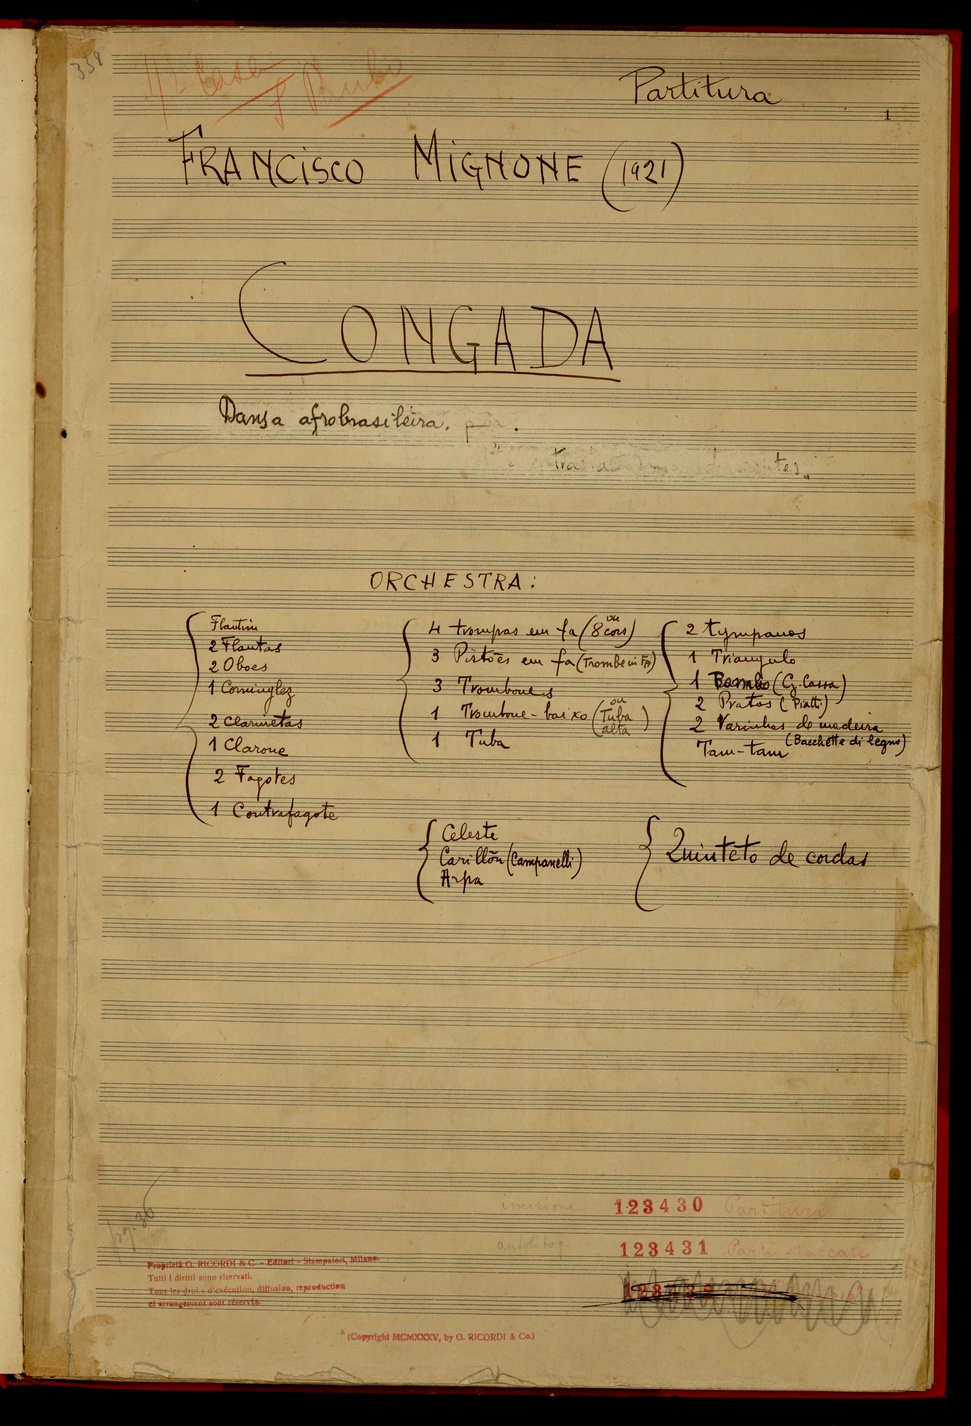 338
Partitura
S. Paulo
1
FRANCISCO MIGNONE (1921)
CONGADA
Dansa afrobrasileira.
ORCHESTRA:
Flautim
2 Flautas
2 Oboes
1 Corninglez
2 Clarinetas
1 Clarone
2 Fagotes
1 Contrafagote
4 trompas em fa (ou 8 cors)
3 Pistões em fa (Trombe in Fa)
3 Trombones
1 Trombone-baixo (ou Tuba alta)
1 Tuba
2 tympanos
1 Triangulo
1 Bombo (G. Cassa)
2 Pratos (Piatti)
2 Varinhas de madeira
(Bacchette di legno)
Tam-tam
Celeste
Carillõn (Campanelli)
Arpa
Quinteto de cordas
123430 Partitura
123431
Proprietà G. RICORDI & C. - Editori - Stampatori, Milano.
Tutti i diritti sono riservati.
Tous les droits d'exécution, diffusion, reproduction
et arrangement sont réservés.
(Copyright MCMXXXV, by G. RICORDI & Co.)